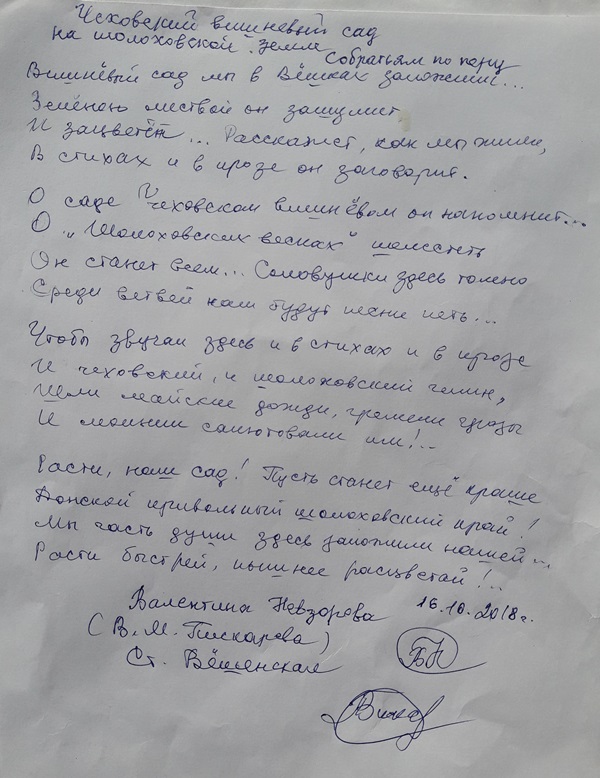 Чеховский вишневый сад
на шолоховской земле
Собратьям по перу
Вишнёвый сад мы в Вёшках заложили...
Зелёною листвой он зашумит
И зацветёт... Расскажет, как мы жили,
В стихах и в прозе он заговорит.
О саде чеховском вишнёвом он напомнит...
О „Шолоховских веснах" шелестеть
Он станет всем... Соловушки здесь только
Среди ветвей нам будут песни петь...
Чтобы звучал здесь и в стихах и в прозе
И чеховский, и шолоховский гимн,
Шли майские дожди, гремели грозы
И молнии салютовали им!..
Расти, наш сад! Пусть станет ещё краше
Донской привольный шолоховский край!
Мы часть души здесь заложили нашей...
Расти быстрей, пышнее расцветай!..
Валентина Невзорова 16.10.2018г.
(В. М. Пискарева)
Ст. Вёшенская
БН